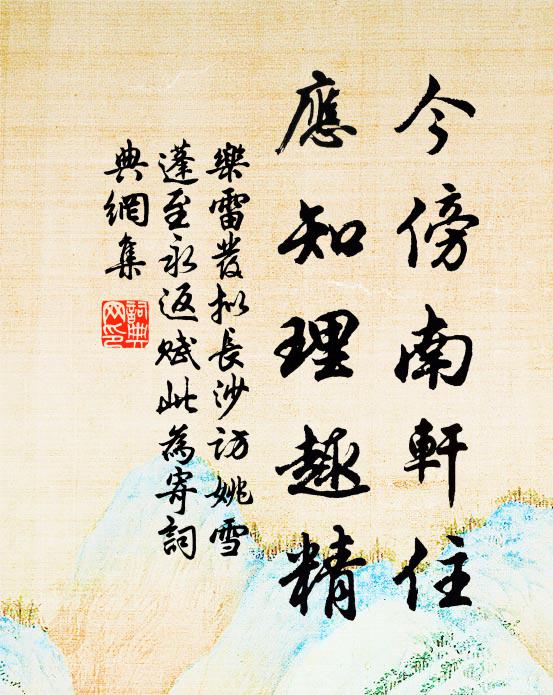 今傍南軒住
應知理趣精
樂雷發拟長沙訪姚雪
蓬至永返賦此為寄詞
典網集
詞典
网印